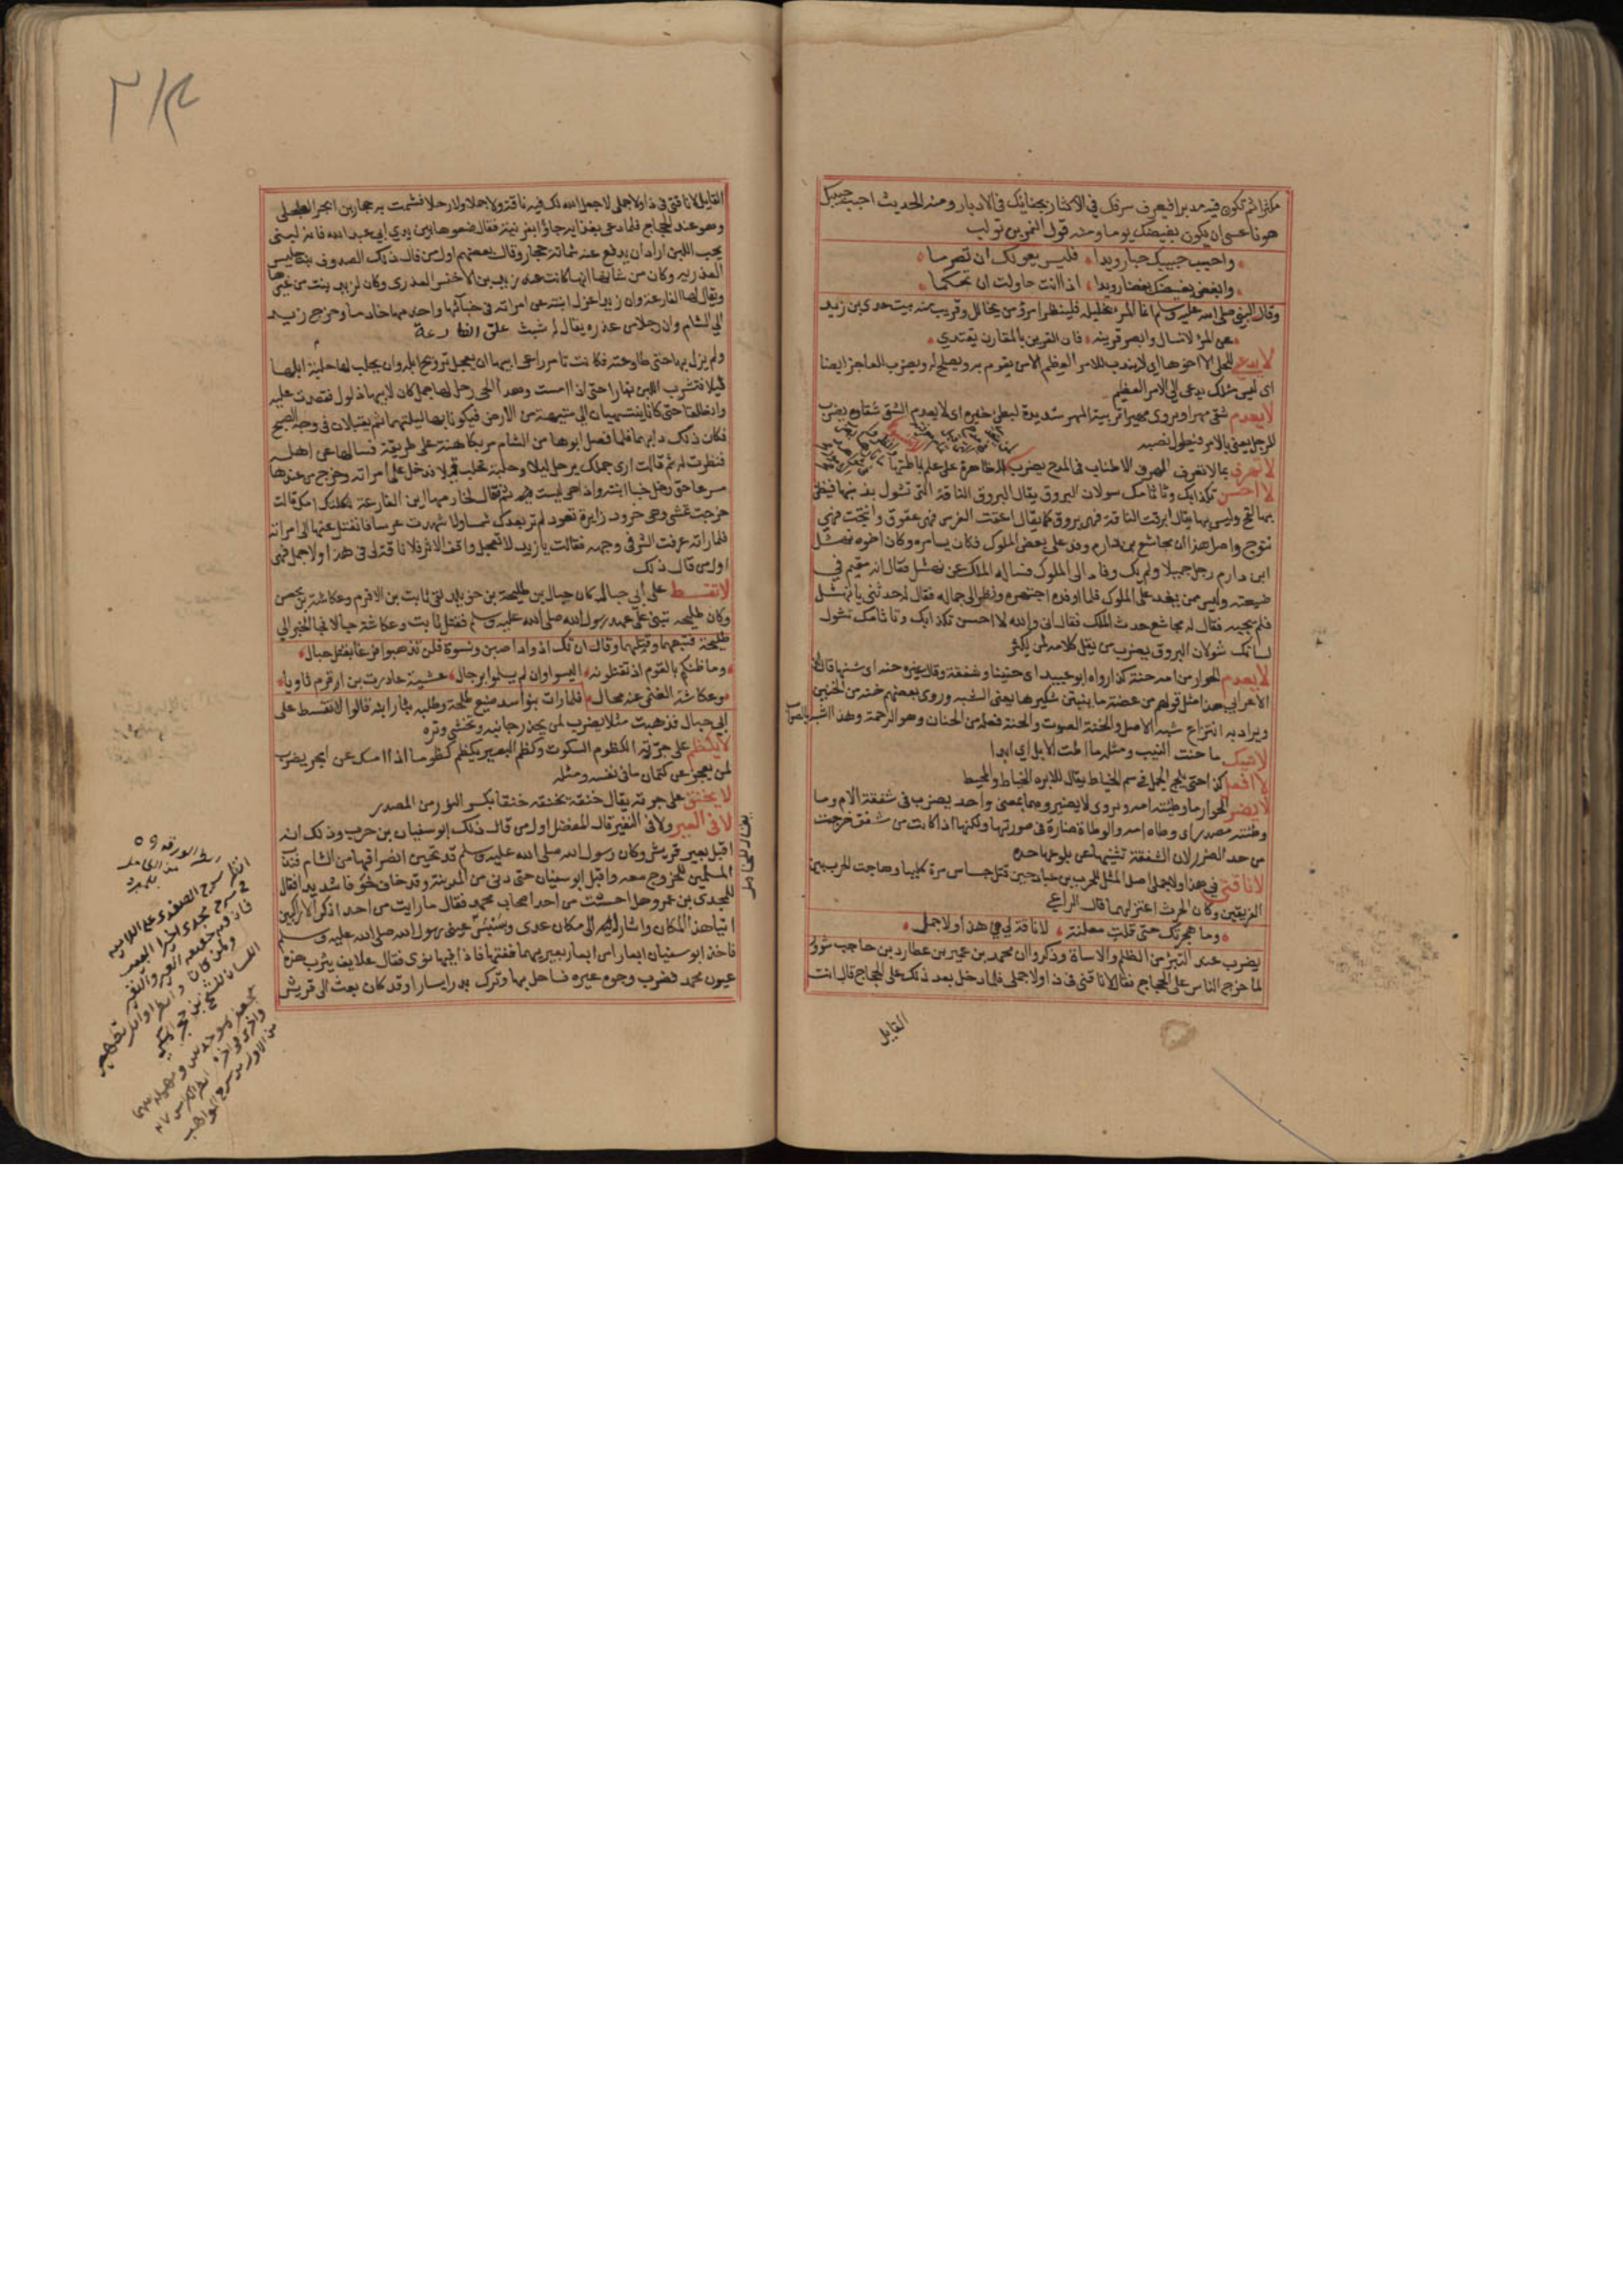 مكثرا ثم تكون فيه مدبرا فيعرف سرفك في الاكثار بجفائك في الادبار ومنه الحديث احبب حبيبك
هونا عسى ان يكون بغيضك يوما ومنه قول النمر بن تولب
واحبب حبيبك حبا رويدا فليس يعولك ان تصرما
وابغض بغيضك بغضا رويدا اذا انت حاولت ان تحكما
وقال النبي صلى الله عليه وسلم انما المرء بخليله فلينظر امرؤ من يخالل وقريب منه بيت عدي بن زيد
عن المرء لا تسال وابصر قرينه فان القرين بالمقارن يقتدي
لا يدعى للجلى الا اخوها اي لا يندب للامر العظيم الا من يقوم به ويصلح له ويضرب للعاجز ايضا
اي ليس مثلك يدعى الى الامر العظيم
لا يعدم شقي مهرا ويروى مهيرا تربية المهر شديدة لبطئ خيره اي لا يعدم الشقي شقاوة يضرب
للرجل يعنى بالامر فيطول نصبه
لا تهرف بما لا تعرف الهرف الاطناب في المدح يضرب
لا احسن تكذابك وتاثامك شولان البروق يقال البروق الناقة التي تشول بذنبها فيظن
بها لقح وليس بها يقال ابرقت الناقة فهي بروق كما يقال اعقت الفرس فهي عقوق وانتجت فهي
نتوج واصل هذا ان مجاشع بن دارم وفد على بعض الملوك فكان يسامره وكان اخوه نهشل
ابن دارم رجل جميلا ولم يك وفادا الى الملوك فساله الملك عن نهشل فقال انه مقيم في
ضيعته وليس ممن يفد على الملوك فلما اوفده اجتهره ونظر الى جماله فقال له حدثني يا نهشل
فلم يجبه فقال له مجاشع حدث الملك فقال اني والله لا احسن تكذابك وتاثامك تشول
لسانك شولان البروق يضرب من يقل كلامه لمن يكثر
لا يعدم الحوار من امه حنة كذا رواه ابو عبيد اي حنينا وشفقة وقال غيره حنه اي شبها قال ابن
الاعرابي هذا مثل قولهم من عضة ما ينبتن شكيرها يعني الشبه وروى بعضهم خنه من الخنين
ويراد به انتزاع شبه الاصل والخنة الصوت والحنة فعلة من الحنان وهو الرحمة وهذا اشبه بالصواب
لا اتيك ما حنت النيب ومثله ما اطت الابل اي ابدا
لا افعل كذا حتى يلج الجمل في سم الخياط يقال للابره الخياط والمخيط
لا يضر الحوار ما وطئته امه ويروى لا يضير وهما بمعنى واحد يضرب في شفقة الام وما
وطئته مصدر اي وطاة امه والوطاة ضارة في صورتها ولكنها اذا كانت من شفق خرجت
من حد الضرر لان الشفقة تثنيها عن بلوغها حده
لا ناقتي في هذا ولا جملي اصل المثل للحرب بن عباد حين قتل جساس مرة كليبا وهاجت الحرب بين
الفريقين وكان الحرث اعتزلهما قال الراعي
وما هجرتك حتى قلت معلنة لا ناقة لي في هذا ولا جمل
يضرب عند التبرؤ من الظلم والاساة وذكروا ان محمد بن عمير بن عطارد بن حاجب
لما خرج الناس على الحجاج فقال لا ناقتي في ذا ولا جملي فلما دخل بعد ذلك على الحجاج قال انت
القايل
القايل لا ناقتي في ذا ولا جملي لا جعل الله لك فيه ناقة ولا جملا ولا رحلا فشمت به حجار بن ابجر العجلي
وهو عند الحجاج فلما دعي بغدايه جاؤا بفرنية فقال ضعوها بين يدي ابي عبد الله فانه لبني
يحب اللبن اراد ان يدفع عنه شماتة حجار وقال بعضهم اول من قال ذلك الصدوف بنت حليس
العذريه وكان من شانها انها كانت عند زيد بن الاخنس العذري وكان لزيد بنت من غيرها
ويقال لها الفارعة وان زيدا عزل ابنته عن امراته في خبائها واخدمها خادما وخرج زيد
الى الشام وان رجلا من عذره يقال له شبث علق الفارعة
ولم يزل بها حتى طاوعته فكانت تامر راعي ابيها ان يعجل ترويح ابله وان يحلب لها حلبة ابلها
قيلا فتشرب اللبن نهارا حتى اذا امست وهدا الحي رحل لها جمل كان لابيها ذلول فقعدت عليه
وانطلقا حتى كانا ينتهيان الى متيهة من الارض فيكونا بها ليلتهما ثم يقبلان في وجه الصبح
فكان ذلك دابهما فلما فصل ابوها من الشام مر بكاهنة على طريقة فسالها عن اهله
فنظرت له ثم قالت ارى جملك يرحل ليلا وحلبة تحلب
مسرعا حتى دخل خبا ابنته واذا هي ليست فيه فقال لخادمها اين الفارعة ثكلتك امك قالت
خرجت تمشي وهي خرود زايرة تعود لم تر بعدك شمسا ولا شهدت عرسا فانفتل عنها الى امراته
فلما راته عرفت الشر في وجهه فقالت يا زيد لا تعجل واقف الاثر فلا ناقة لي في هذا ولا جمل فهي
اول من قال ذلك
لا تقسط على ابي حبال كان حبال بن طليحة بن خويلد لقي ثابت بن الاقرم وعكاشة بن محصن
وكان طليحه تنبى على عهد رسول الله صلى الله عليه وسلم فقتل ثابت وعكاشة حبالا فجا الخبر الى
طليحة فتبعهما وقتلهما وقال ان تك اذواد اصبن ونسوة فلن تذهبوا فرغا بقتل حبال
وما ظنكم بالقوم اذ تقتلونه اليسوا وان لم يسلموا برجال عشية غادرت بن ارقم ثاويا
وعكاشة الغنمي عنه بمحال فلما رات بنو اسد صنيع طلحة وطلبه بثار ابنه قالوا لا تقسط على
ابي حبال فذهبت مثلا يضرب لمن يحذر جانبه وتخشى وتره
لا يكظم على جرته الكظوم السكوت وكظم البعير يكظم كظوما اذا امسك عن الجر يضرب
لمن يعجز عن كتمان ما في نفسه ومثله
لا يخنق على جرته يقال خنقة يخنقه خنقا بكسر النون من المصدر
لا في العير ولا في النفير قال المفضل اول من قال ذلك ابو سفيان بن حرب وذلك انه
اقبل بعير قريش وكان رسول الله صلى الله عليه وسلم قد تحين انصرافها من الشام فندب
المسلمين للخروج معه واقبل ابو سفيان حتى دنى من المدينة وقد خاف خوفا شديدا فقال
للمجدي بن عمرو هل احسست من احد اصحاب محمد فقال ما رايت من احد اذكر الا راكبين
اتيا هذا المكان واشار اليه الى مكان عدي وبسبس عيني رسول الله صلى الله عليه وسلم
فاخذ ابو سفيان ابعارا من ابعار بعيريهما ففتها فاذا فيها نوى فقال علايف يثرب هذه
عيون محمد فضرب وجوه عيره فساحل بها وترك بدرا يسارا وقد كان بعث الى قريش